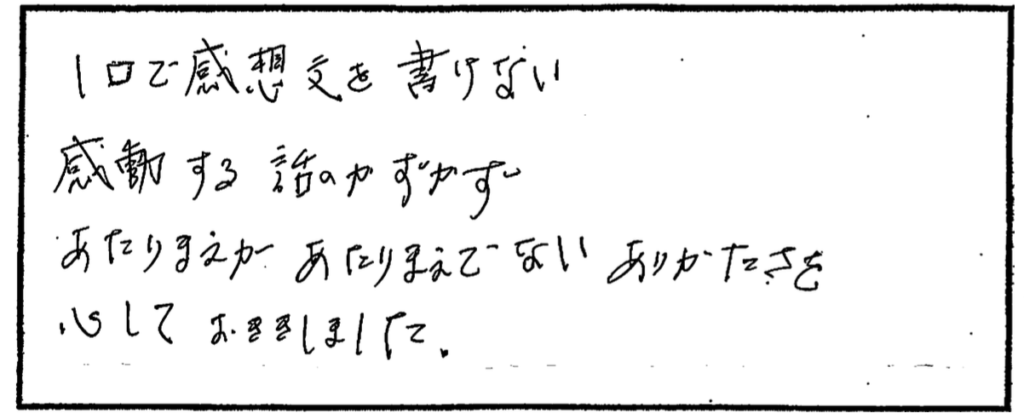 1口で感想文を書けない
感動する話のかずかず
あたりまえが あたりまえでない ありがたさを
心して おききしました。